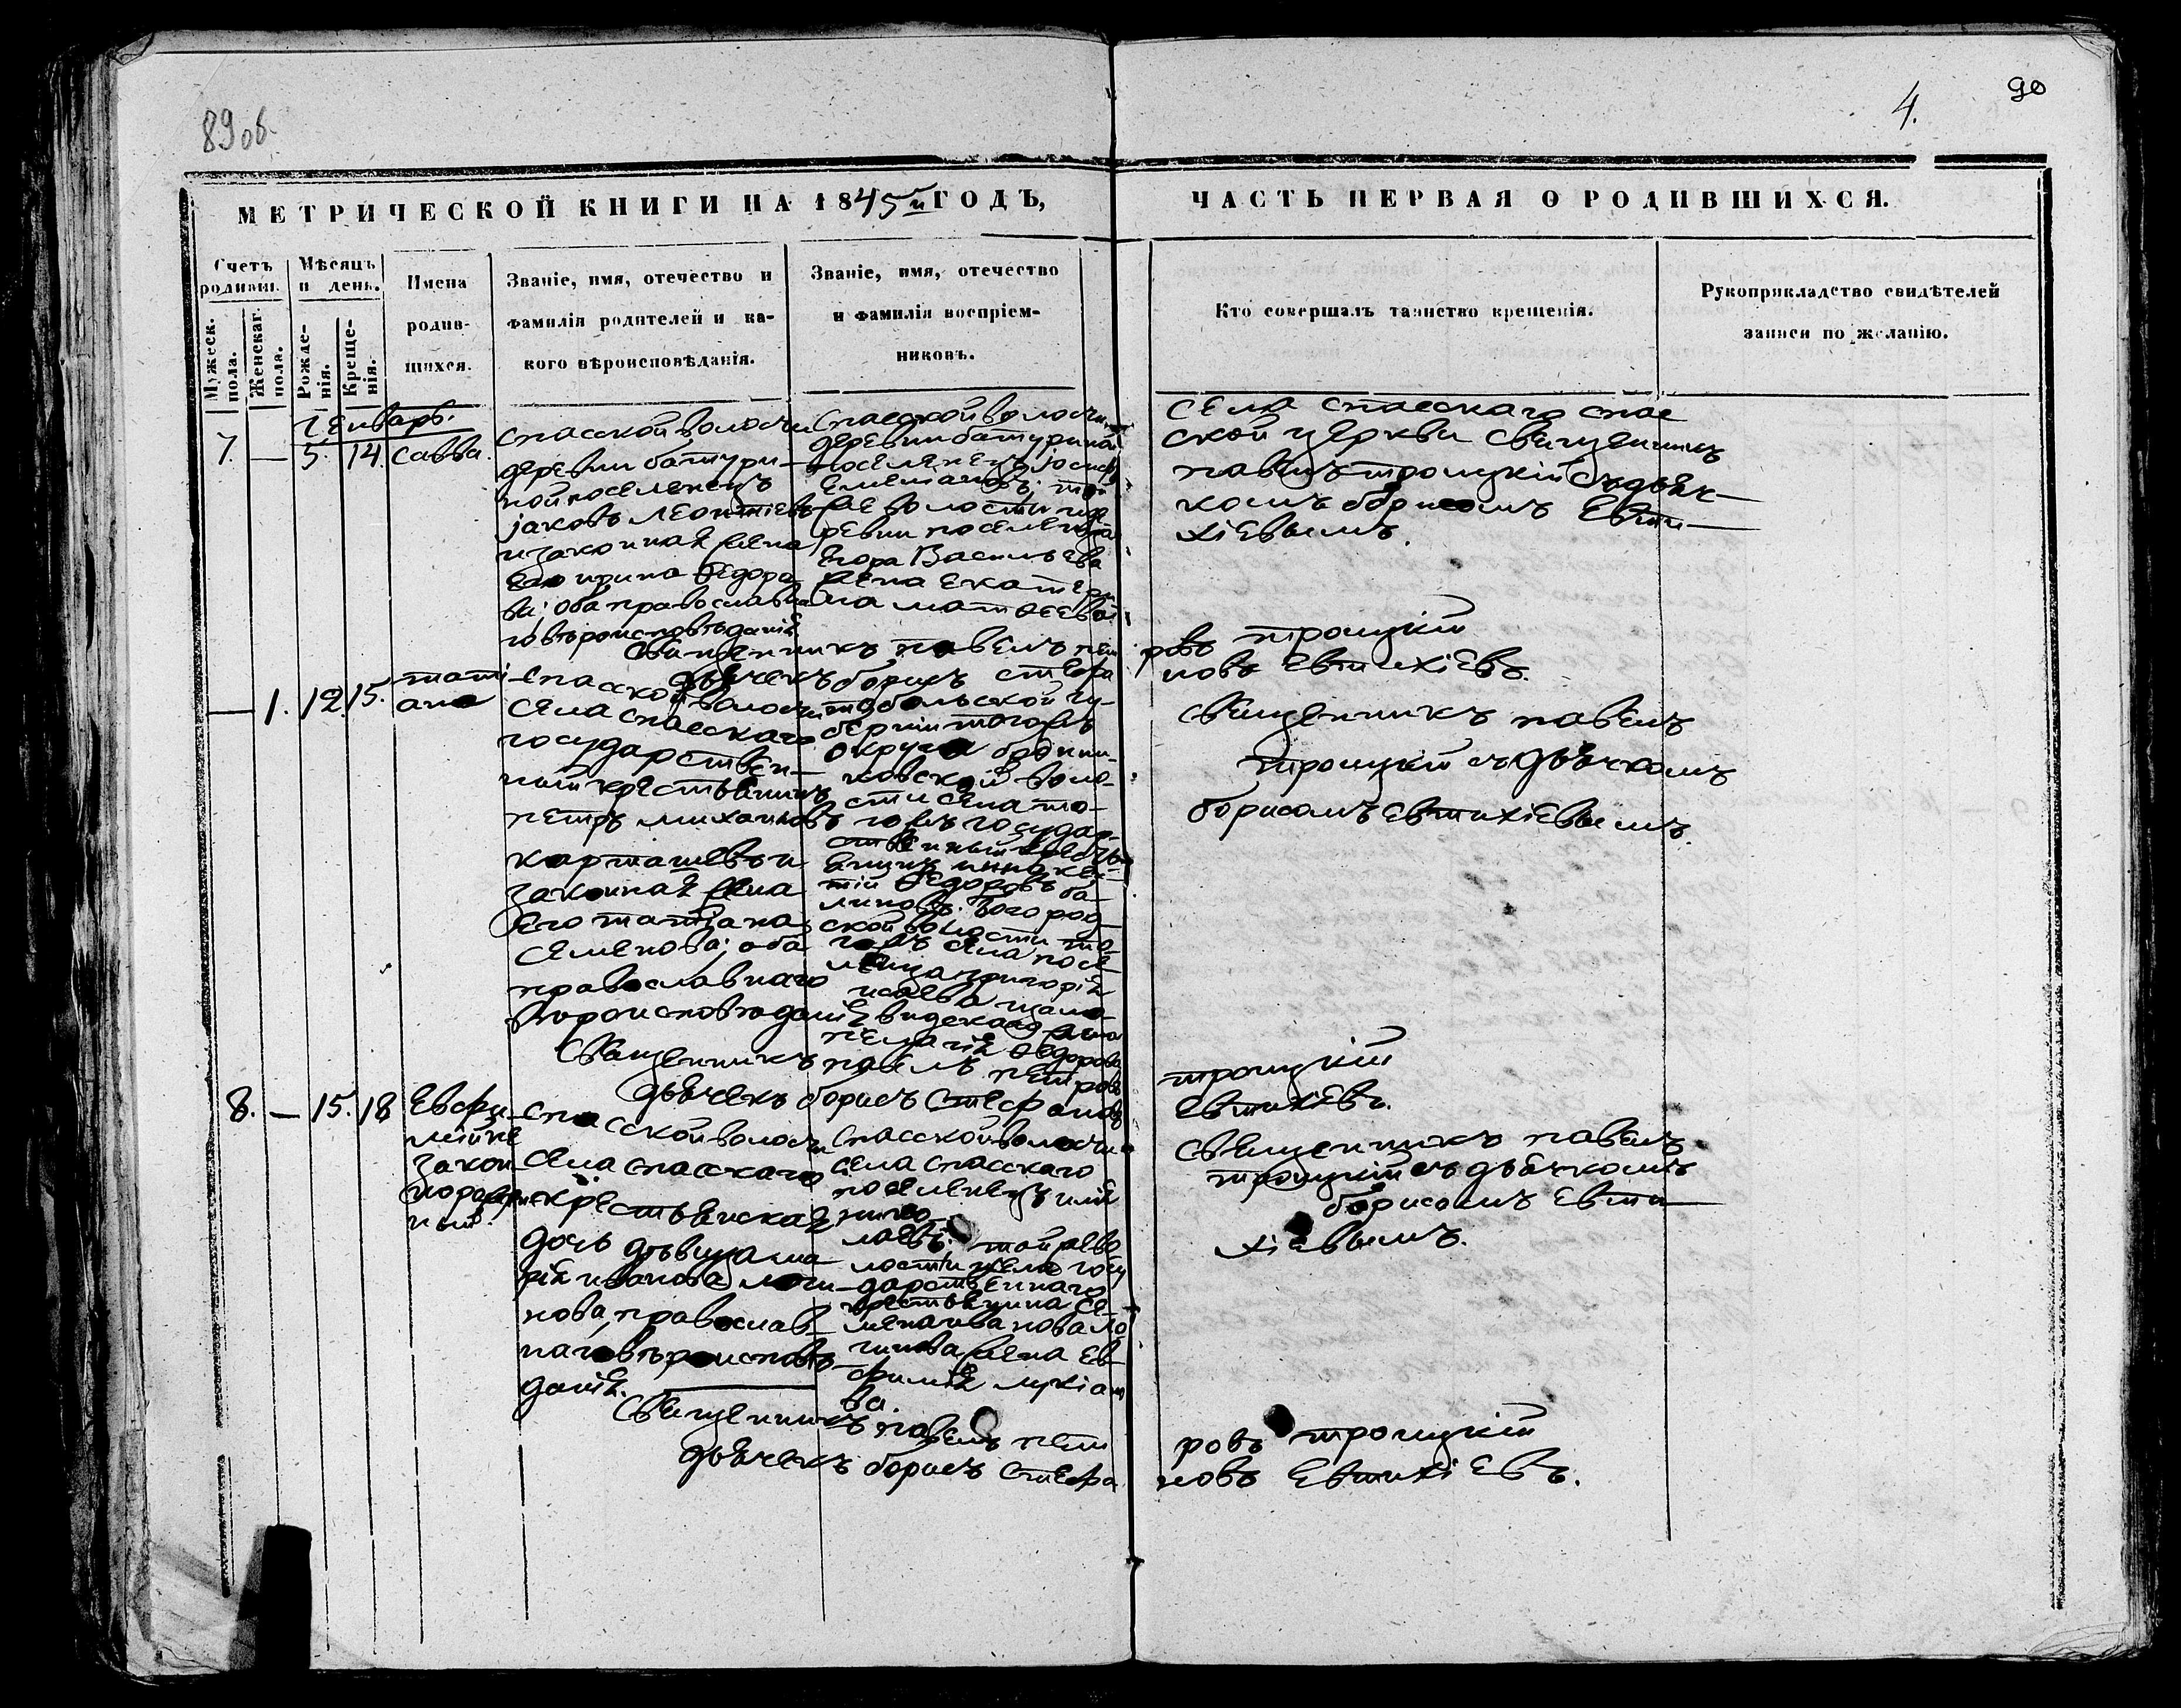 89 об.
4.
90
МЕТРИЧЕСКОЙ КНИГИ НА 1845й ГОДЪ,
ЧАСТЬ ПЕРВАЯ О РОДИВШИХСЯ.
Счетъ родивш.
Мужеск. пола.
Женскаг. пола.
Мѣсяцъ и день.
Рожденія.
Крещенія.
Имена
родив-
шихся.
Званіе, имя, отечество и
фамилія родителей и ка-
кого вѣроисповѣданія.
Званіе, имя, отечество
и фамилія воспріем-
никовъ.
Кто совершалъ таинство крещенія.
Рукоприкладство свидѣтелей
записи по желанію.
Генварь.
7. — 5. 14. Савва.
Спасской волости
деревни батури-
ной поселенецъ
јаковъ Леонтіевъ
и законная жена
его ирина Ѳедоро-
ва; оба православна
го вѣроисповѣданія
Спасской волости
деревни батуриной
поселенецъ јосифъ
Емельяновъ; той
же волости и де
ревни поселенца
Егора Васильева
жена екатери
на матѳеева
Села спасскаго спас
ской церкви Священникъ
павелъ троицкій съ дьяч-
комъ борисомъ Евти-
хіевымъ.
Священникъ павелъ пет
ровъ троицкій
дьячекъ борисъ стефа
новъ Евтихіевъ.
— 1. 12. 15. тати
ана
Спасской волости
Села спасскаго
государствен-
ный крестьянинъ
петръ михайловъ
карташевъ и
законная жена
его татіана
Семенова; оба
православнаго
вѣроисповѣданія
тобольской гу-
берніи тогожъ
округа
ковской воло-
сти села то-
гожъ государ-
ственный кресть
янинъ инокен-
тій Ѳедоровъ ба-
линовъ. богород-
ской волости то-
гожъ села посе-
ленца григорія
исаева
жена
пелагія Ѳедорова
Священникъ павелъ
троицкій съ дьячкомъ
борисомъ Евтихіевымъ.
Священникъ павелъ петровъ
троицкій
дьячекъ борисъ Стефановъ
Евтихіевъ.
8. — 15. 18 Евфи
мій не
закон
норожден
ный.
Спасской волости
Села спасскаго
крестьянская
дочь дѣвица ма
рія иванова логи
нова, православ-
наго вѣроисповѣ-
данія.
Спасской волости
села спасскаго
поселенецъ илія
нико-
лаевъ. той же во
лости села госу
дарственнаго
крестьянина Се-
мена иванова ло
гинова жена Ев-
фимія лукіано
ва.
Священникъ павелъ
троицкій съ дьячкомъ
борисомъ Евти-
хіевымъ.
Священникъ павелъ пет
ровъ троицкій
дьячекъ борисъ Стефа
новъ Евтихіевъ.